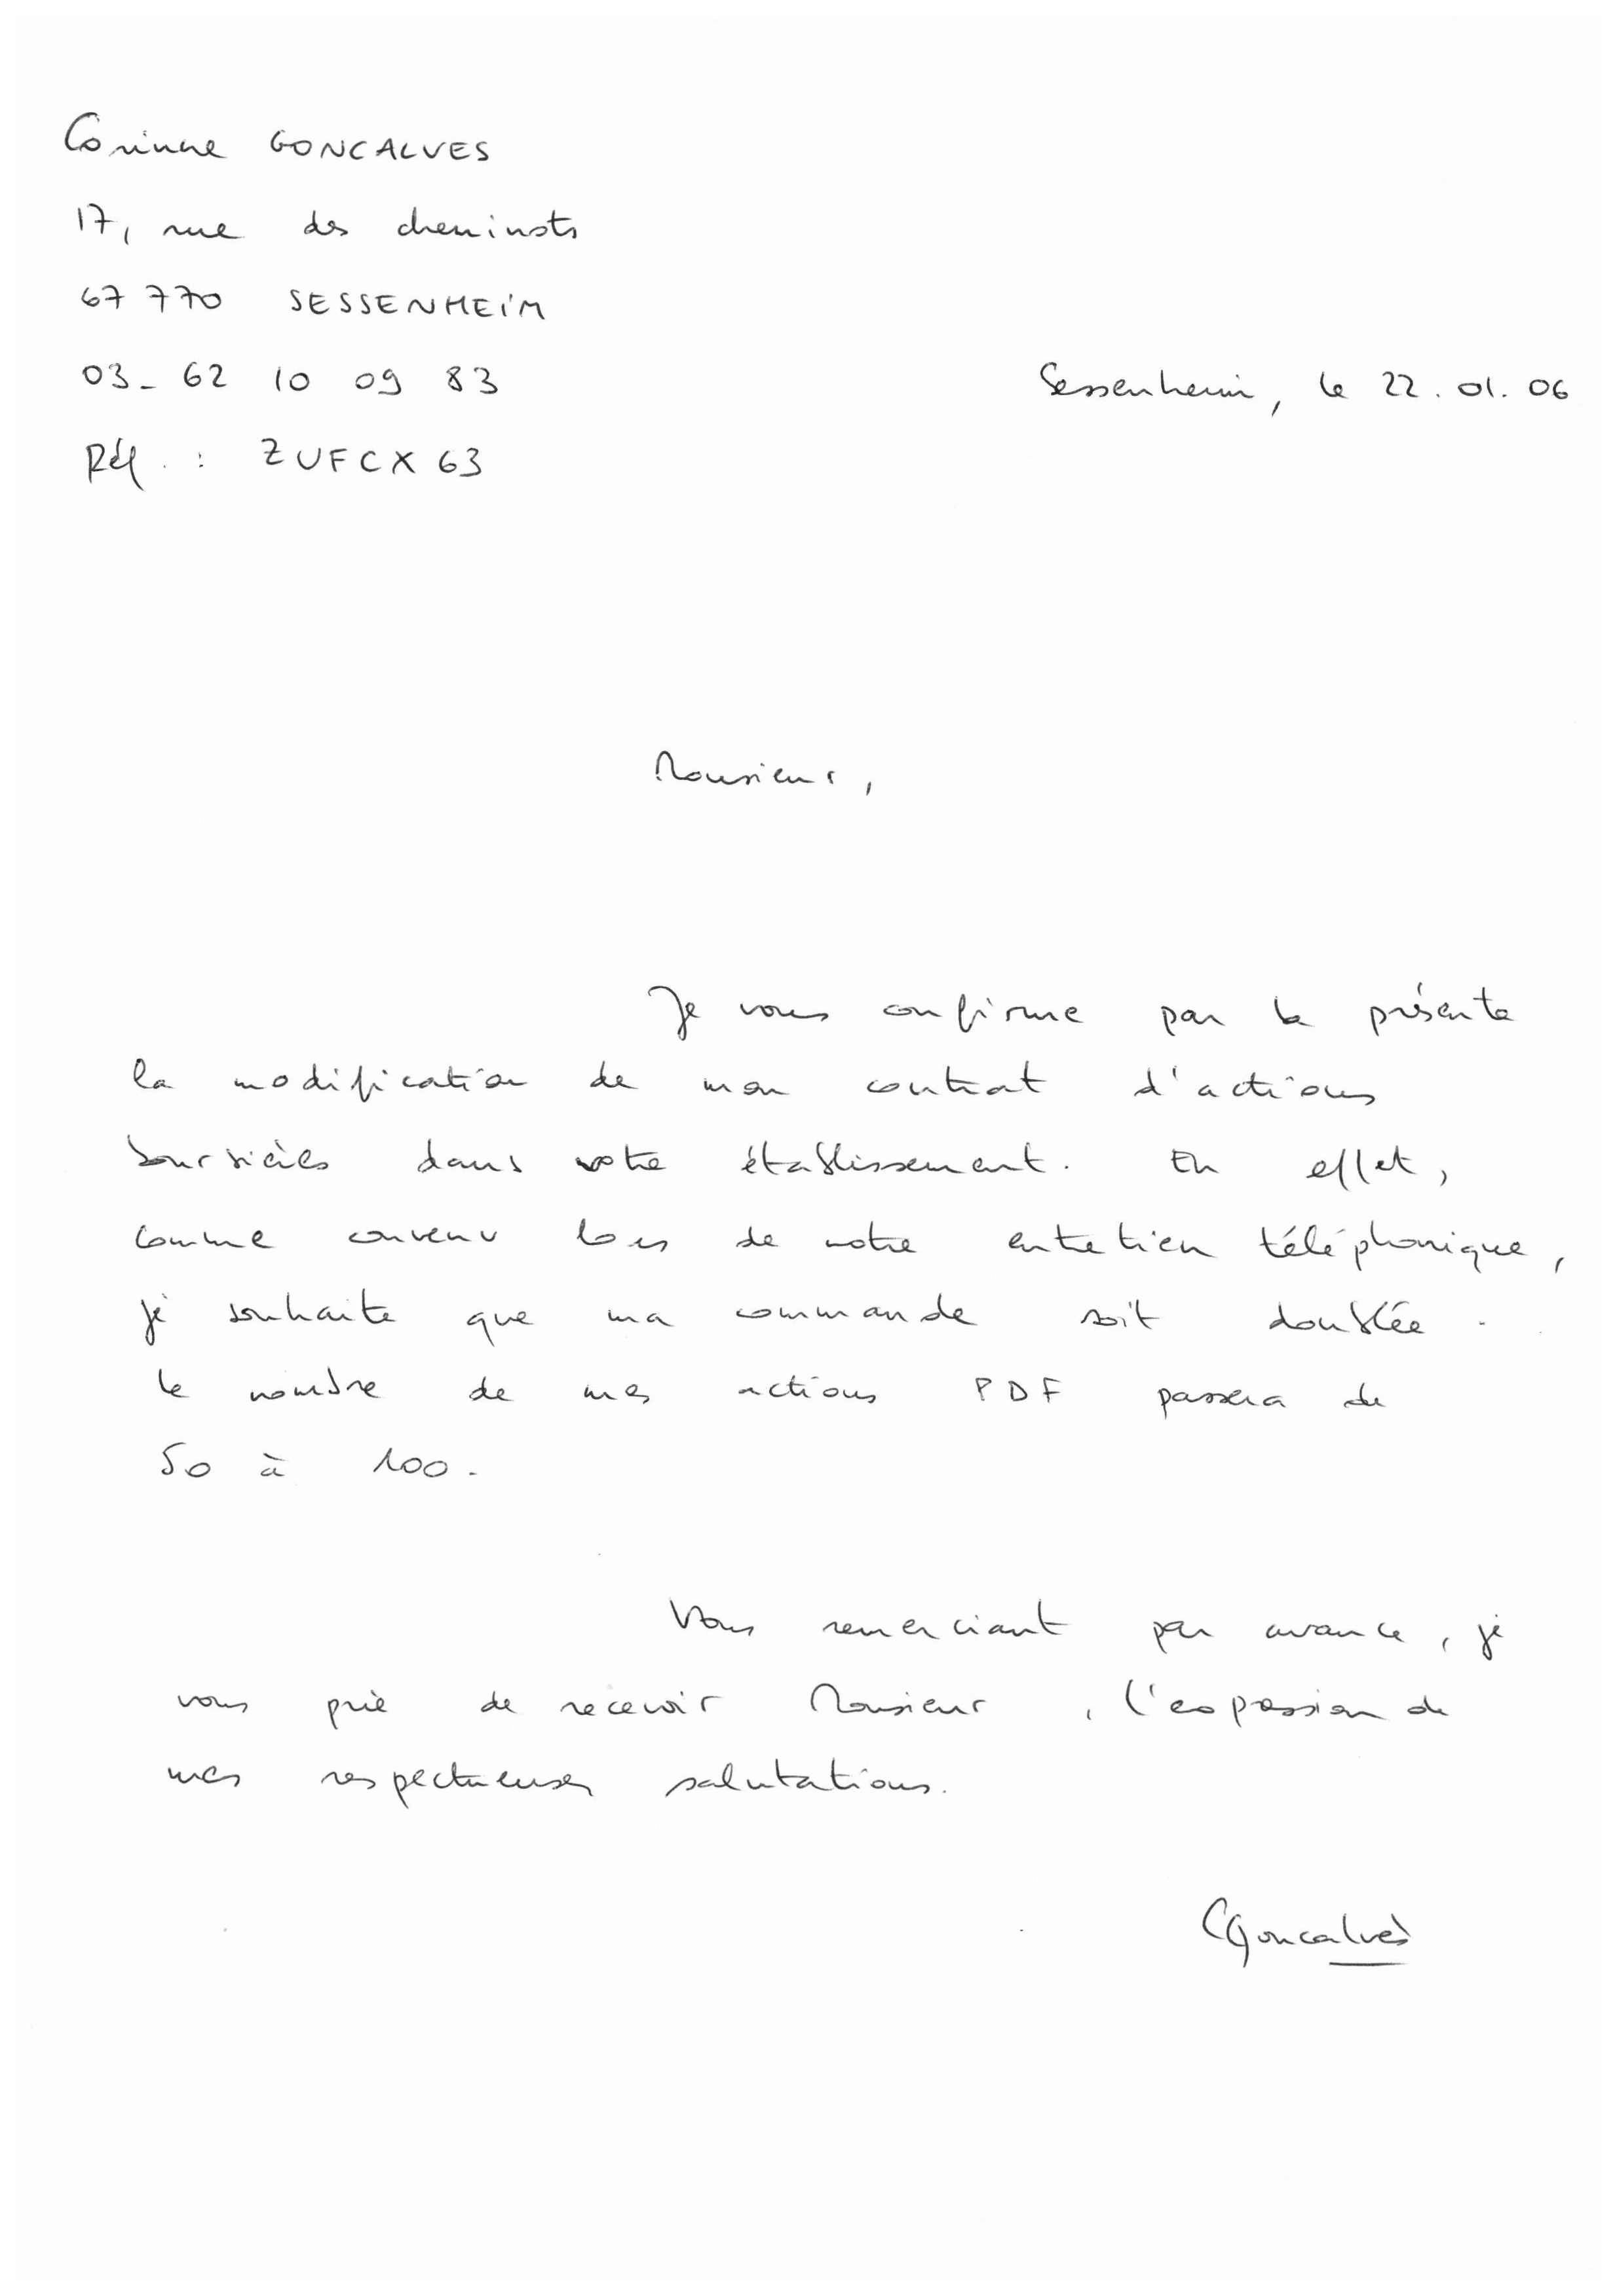 Corinne GONCALVES
17, rue des cheminots
67 770 SESSENHEIM
03_ 62 10 09 83
Sessenheim, le 22.01.06
Réf. : ZUFCX63
Monsieur,
Je vous confirme par la présente
la modification de mon contrat d'actions
boursières dans votre établissement. En effet,
comme convenu lors de notre entretien téléphonique,
je souhaite que ma commande soit doublée.
le nombre de mes actions PDF passera de
50 à 100.
Vous remerciant par avance, je
vous prie de recevoir Monsieur, l'expression de
mes respectueuses salutations.
CGoncalves